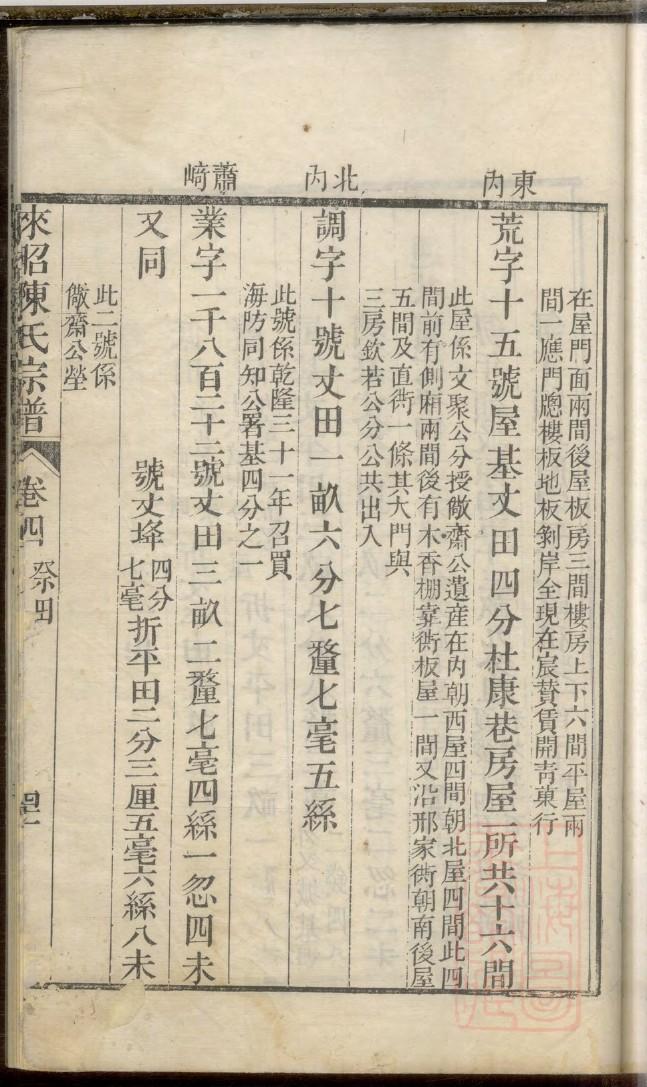 在屋門面兩間後屋板房三間樓房上下六間平屋兩
間一應門牕樓板地板剝岸全現在宸賛賃開靑菓行
東內
荒字十五號屋基丈田四分杜康巷房屋一所共十六間
此屋係文聚公分授儆齋公遺產在內朝西屋四間朝北屋四間此四
間前有側廂兩間後有木香棚靠衖板屋一間又沿邢家衖朝南後屋
五間及直衖一條其大門與
三房欽若公分公共出入
北內
調字十號丈田一畝六分七釐七毫五絲
此號係乾隆三十一年召買
海防同知公署基四分之一
蕭﨑
業字一千八百二十二號丈田三畝二釐七毫四絲一忽四未
又同
號丈埄四分七毫折平田二分三厘五毫六絲八未
此二號係
儆齋公塋
來昭陳氏宗譜
卷四 祭田